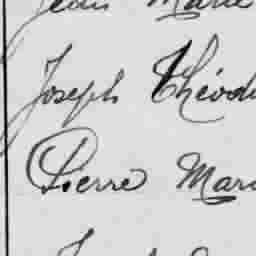 Jean Marie
Joseph Théodu
Pierre Mari